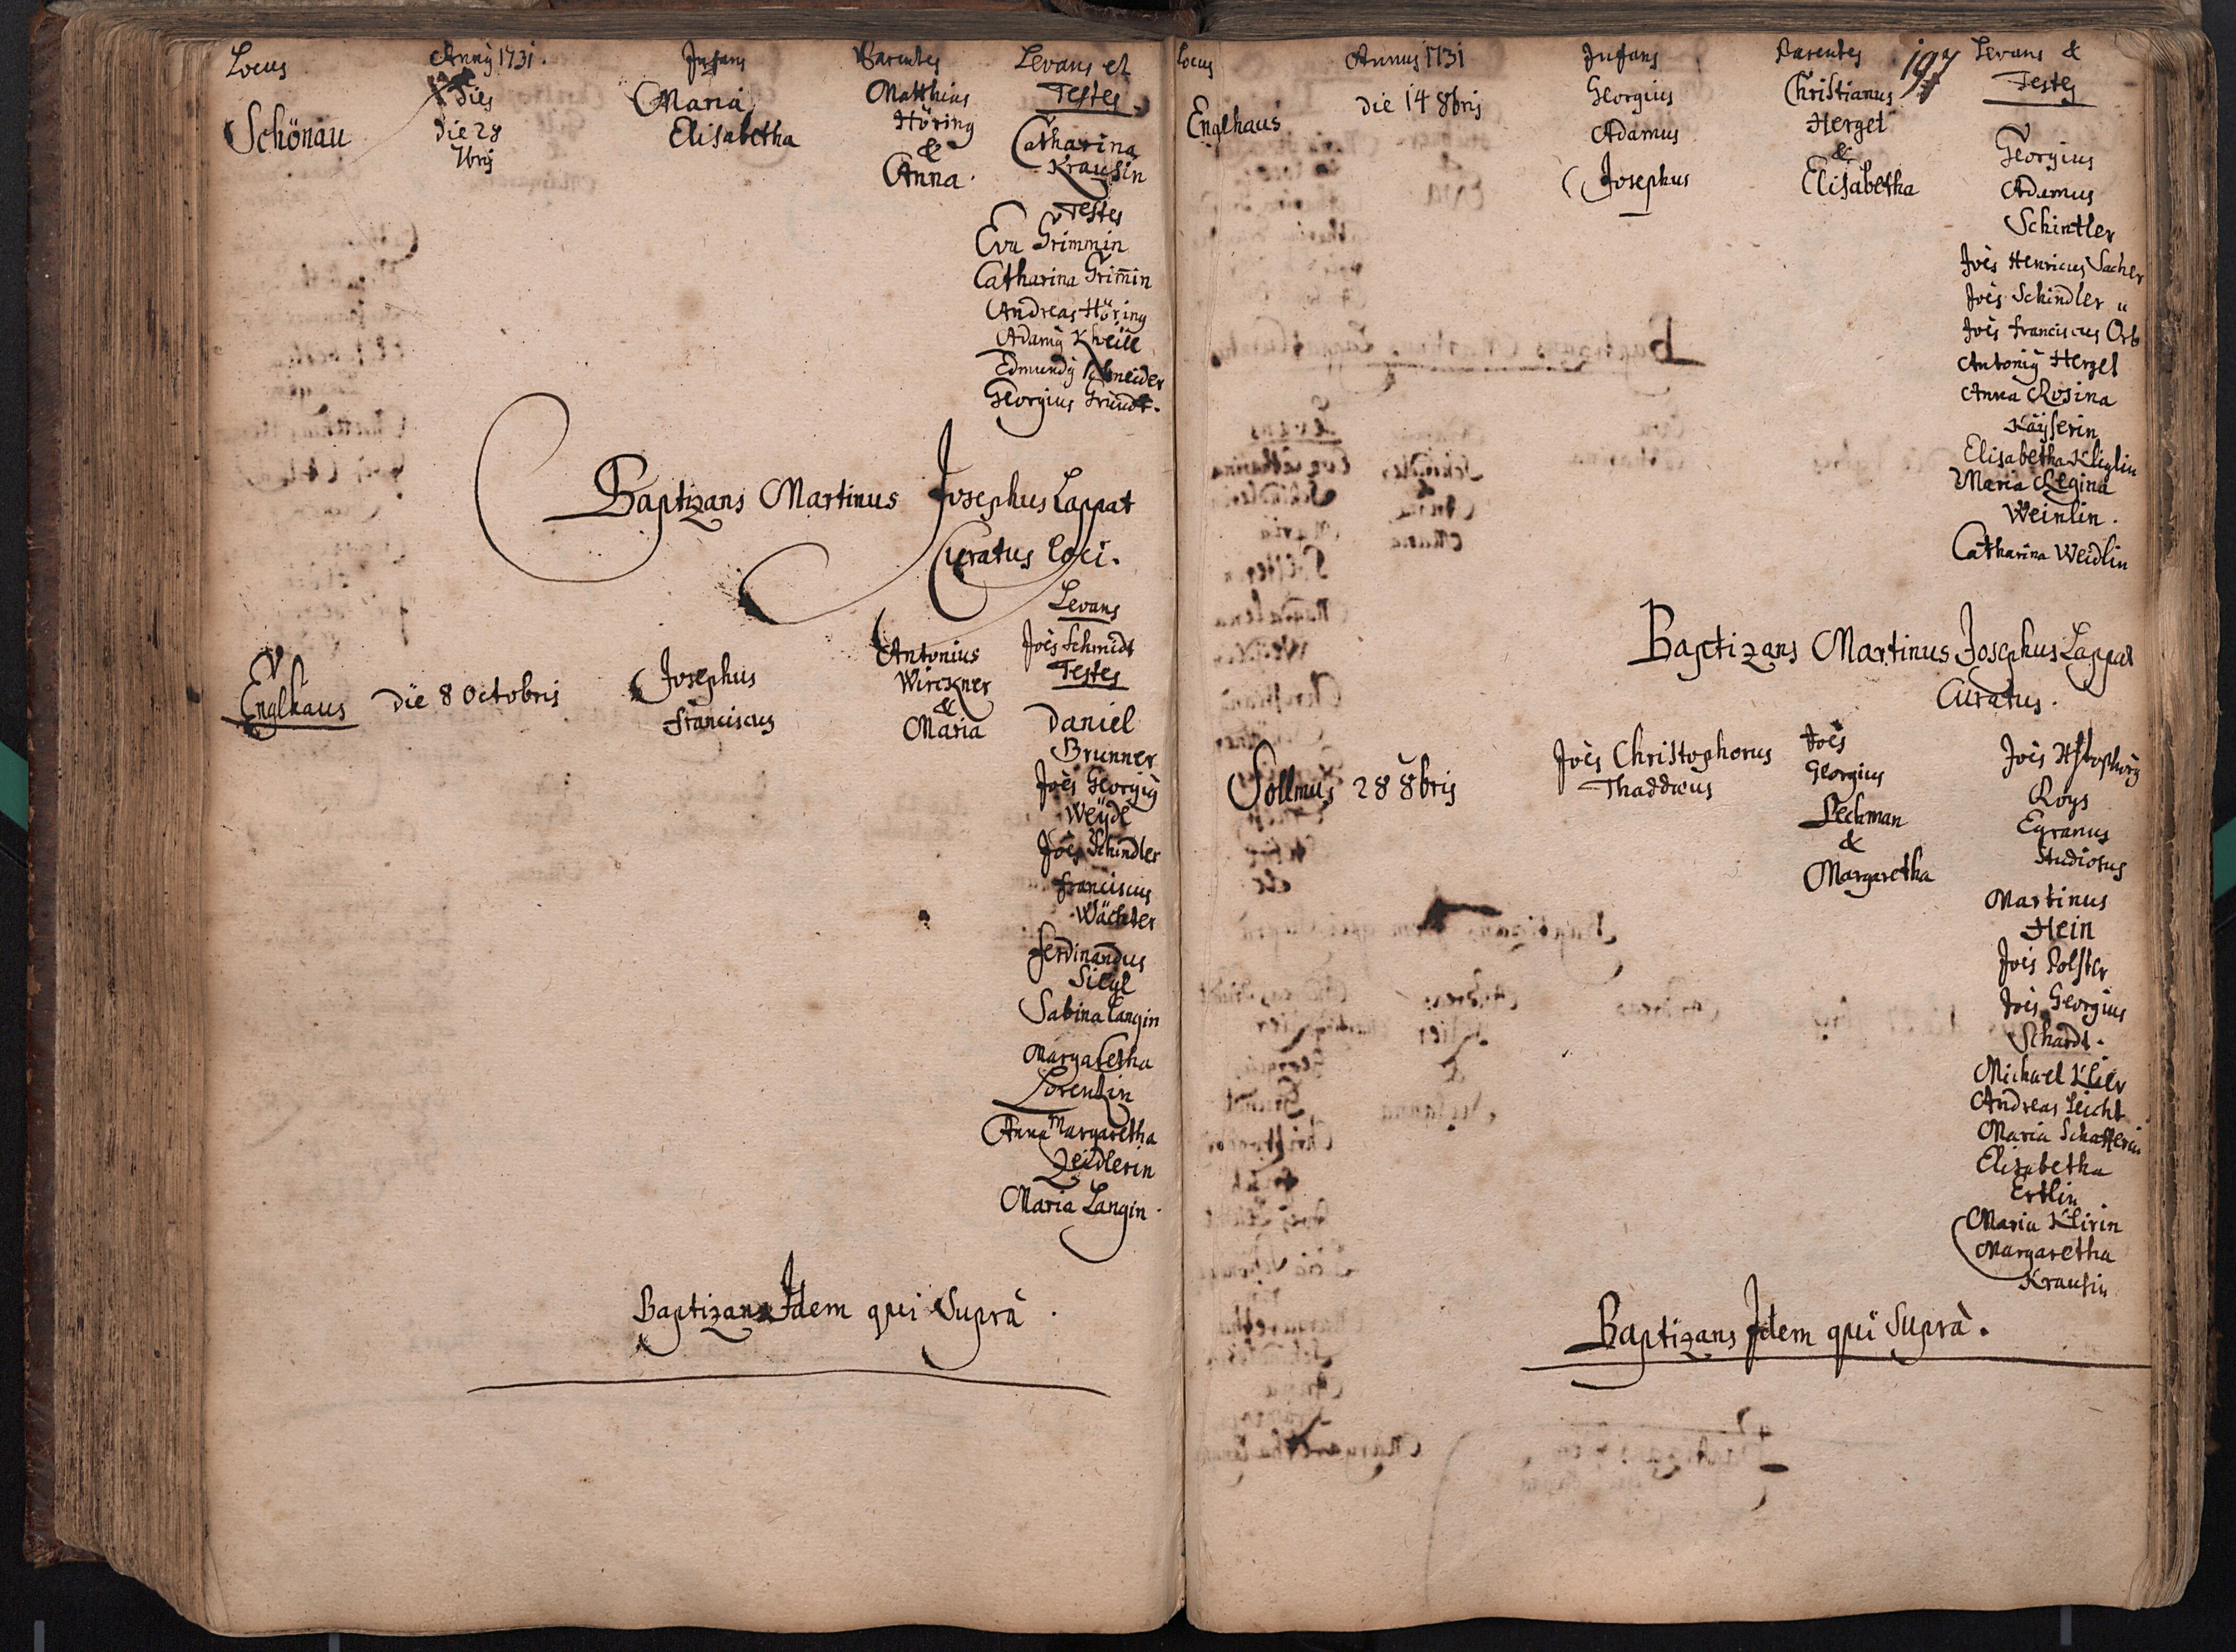 Locus Anny 1731. Infans Parentes Levans et
Dies Maria Matthias Testes
Schönau die 28 Elisabetha Höring Catharina
7bris & Krausin
Anna.
Testes
Eva Grimmin
Catharina Grim̄in
Andreas Höring
Adamy Kheill
Edmundy Schneider
Georgius Gründt.
Baptizans Martinus Josephus Lappat
Curatus Loci.
Levans
Joēs Schmidt
Englhaus die 8 Octobris Josephus Antonius Testes
Franciscus Wirckner
&
Maria Daniel
Brunner
Joēs Georgiy
Weÿdl
Joēs Schindler
Franciscus
Wächter
Ferdinandus
Siegl
Sabina Langin
Margaretha
Lorentzin
Anna Margaretha
Zeidlerin
Maria Langin.
Baptizans Idem qui Suprà.
Locus Annus 1731 Infans Parentes 197 Levans &
Englhaus Die 14 8bris Georgius Christianus Testes
Adamus Herget Georgius
Josephus & Adamus
Elisabetha Schintler
Joēs Henricus Sacher
Joēs Schindler
Joēs Franciscus Orb
Antoniy Herget
Anna Rosina
Käÿserin
Elisabetha Kliglin
Maria Regina
Weinlin.
Catharina Weidlin
Baptizans Martinus Josephus Lappat
Curatus.
Sollmus 28 8bris Joēs Christophorus Joēs Joēs Xstophory
Thaddaeus Georgius Roys
Peckman Egranus
& Studiosus
Margaretha Martinus
Hein
Joēs Polster
Joēs Georgius
Schardt.
Michael Klier
Andreas Leicht
Maria Schafferin
Elisabetha
Ertlin
Maria Klirin
Margaretha
Krausin
Baptizans Idem qui Suprà.